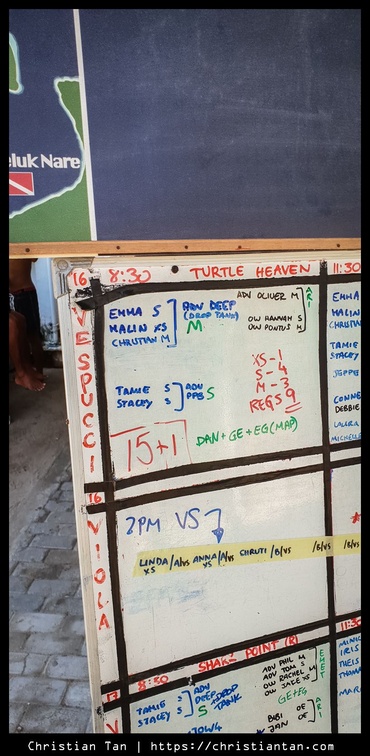 eluk Nare
16 8:30 TURTLE HEAVEN 11:30
VESPUCCI
EMMA S
MALIN XS
CHRISTIAN M
ADV DEEP
(DROP TANK)
M
ADV OLIVER M
OW HANNAH S
OW PONTUS M
ARI
TAMIE S
STACEY S
ADV
PPB S
XS-1
S-4
M-3
REGS 9
15+1
DAN+GE+EG(MAP)
EMMA
MALIN
CHRISTIAN
TAMIE
STACEY
JEPPE
CONNE
DEBBIE
LAURA
MICHELLE
16
VIOLA
2PM VS
LINDA/A/VS ANNA/A/VS SHRUTI /B/VS /B/VS /B/VS
XS XS
13 8:30 SHARK POINT (R) 11:30
TAMIE S
STACEY S
ADV
DEEP
S
DROP
TANK
ADV PHIL M
ADV TOM S
OW RACHEL M
OW JAKE XS
EMET
GE+EG
BIBI OE
JAN OE
ARI
IRIS
THEIS
Christian Tan | https://christiantan.com